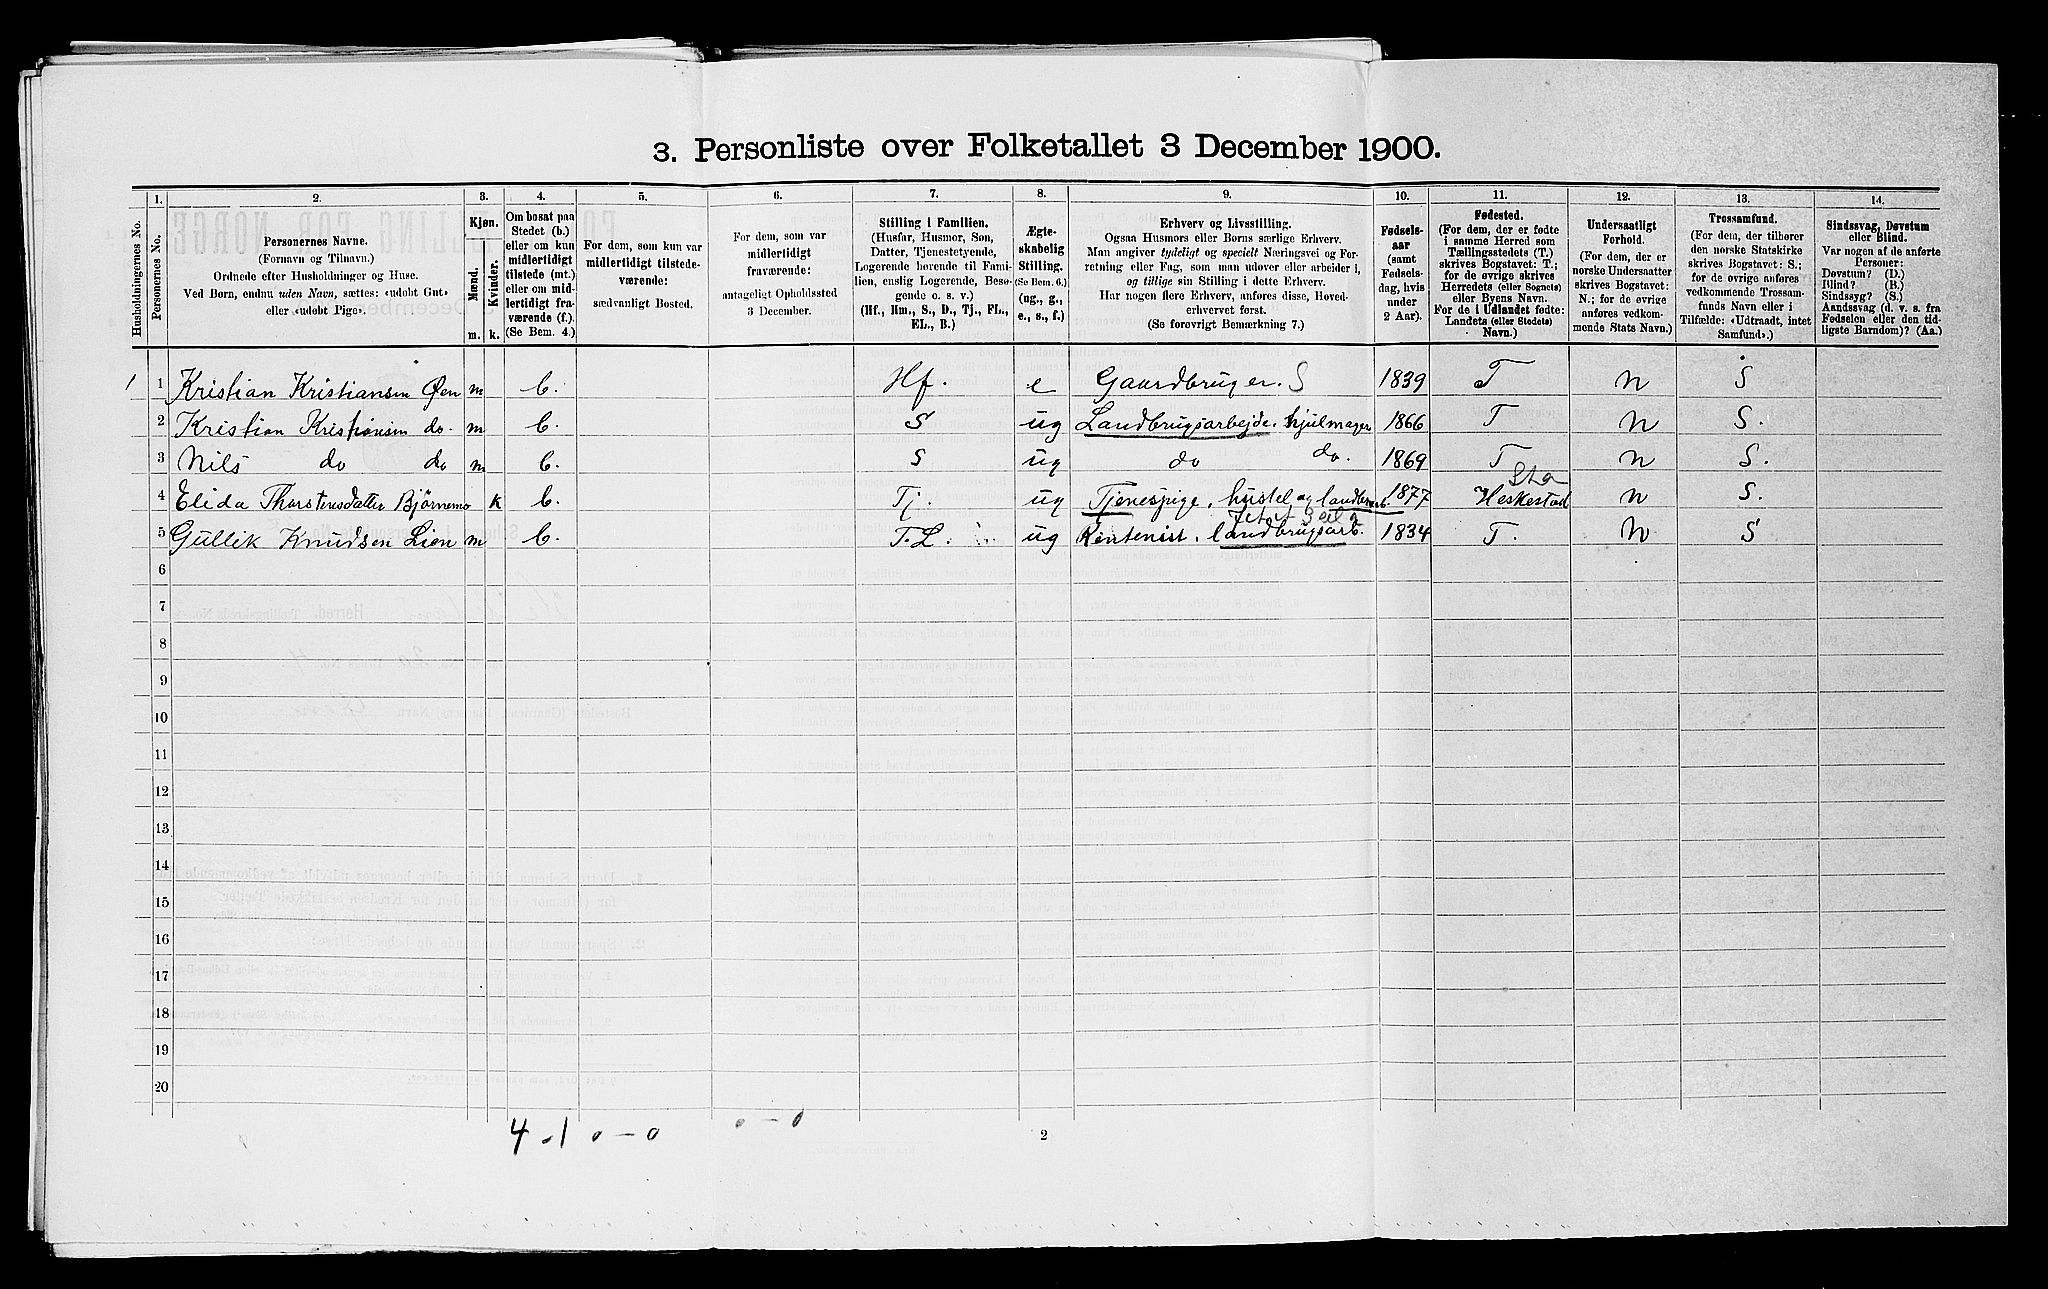 3. Personliste over Folketallet 3 December 1900.
1. 2. 3. 4. 5. 6. 7. 8. 9. 10. 11. 12. 13. 14.
Husholdningernes No.
Personernes No.
Personernes Navne.
(Fornavn og Tilnavn.)
Ordnede efter Husholdninger og Huse.
Ved Børn, endnu uden Navn, sættes: «udøbt Gut»
eller «udøbt Pige».
Kjøn.
Mænd.
Kvinder.
m. k.
Om bosat paa
Stedet (b.)
eller om kun
midlertidigt
tilstede (mt.)
eller om mid-
lertidigt fra-
værende (f.)
(Se Bem. 4.)
For dem, som kun var
midlertidigt tilstede-
værende:
sædvanligt Bosted.
For dem, som var
midlertidigt
fraværende:
antageligt Opholdssted
3 December.
Stilling i Familien.
(Husfar, Husmor, Søn,
Datter, Tjenestetyende,
Logerende hørende til Fami-
lien, enslig Logerende, Besø-
gende o. s. v.)
(Hf., Hm., S., D., Tj., FL.,
EL., B.)
Ægte-
skabelig
Stilling.
(Se Bem. 6.)
(ug., g.,
e., s., f.)
Erhverv og Livsstilling.
Ogsaa Husmors eller Børns særlige Erhverv.
Man angiver tydeligt og specielt Næringsvei og For-
retning eller Fag, som man udover eller arbeider i,
og tillige sin Stilling i dette Erhverv.
Har nogen flere Erhverv, anføres disse, Hoved-
erhvervet først.
(Se forøvrigt Bemærkning 7.)
Fødsels-
aar
(samt
Fødsels-
dag, hvis
under
2 Aar).
Fødested.
(For dem, der er fødte
i samme Herred som
Tællingsstedets (T.)
skrives Bogstavet: T.;
for de øvrige skrives
Herredets (eller Sognets)
eller Byens Navn.
For de i Udlandet fødte:
Landets (eller Stedets)
Navn.)
Undersaatligt
Forhold.
(For dem, der er
norske Undersaatter
skrives Bogstavet:
N.; for de øvrige
anføres vedkom-
mende Stats Navn.)
Trossamfund.
(For dem, der tilhører
den norske Statskirke
skrives Bogstavet: S.;
for de øvrige anføres
vedkommende Trossam-
funds Navn eller i
Tilfælde: «Udtraadt, intet
Samfund».)
Sindssvag, Døvstum
eller Blind.
Var nogen af de anførte
Personer:
Døvstum? (D.)
Blind? (B.)
Sindssyg? (S.)
Aandssvag (d. v. s. fra
Fødselen eller den tid-
ligste Barndom)? (Aa.)
1 1 Kristian Kristiansen Øen m b. Hf. e Gaardbruger. S 1839 T N S
2 Kristian Kristiansen do. m b. S ug Landbrugsarbejde. hjulmager 1866 T N S.
3 Nils do do m b. S ug do do. 1869 T N S.
4 Elida Thorstensdatter Bjørnemo k b. Tj. ug Tjenespige, hustel og landbrarb. 1877 Heskestad N S.
5 Gullik Knudsen Lien m b. T.L. ug Rentenist, landbrugsarb. 1834 T. N S
6
7
8
9
10
11
12
13
14
15
16
17
18
19
20
4 - 1 0 - 0 0 - 0
2